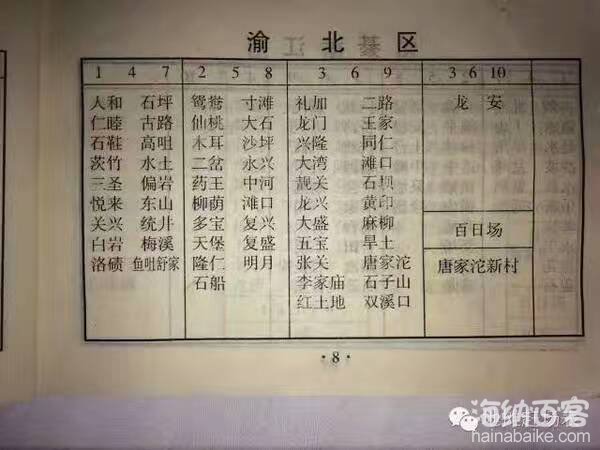 渝北区
1 4 7 2 5 8 3 6 9 3 6 10
人和 石坪 鸳鸯 寸滩 礼加 二路 龙安
仁睦 古路 仙桃 大石 龙门 王家
石鞋 高咀 木耳 沙坪 兴隆 同仁
茨竹 水土 二岔 永兴 大湾 滩口
三圣 偏岩 药王 中河 靓关 石坝
悦来 东山 柳荫 滩口 龙兴 黄印
关兴 统井 多宝 复兴 大盛 麻柳 百日场
白岩 梅溪 天堡 复盛 五宝 旱土
洛碛 鱼咀舒家 隆仁 明月 张关 唐家沱 唐家沱新村
石船 李家庙 石子山
红土地 双溪口
·8·
海纳百客
hainabaike.com